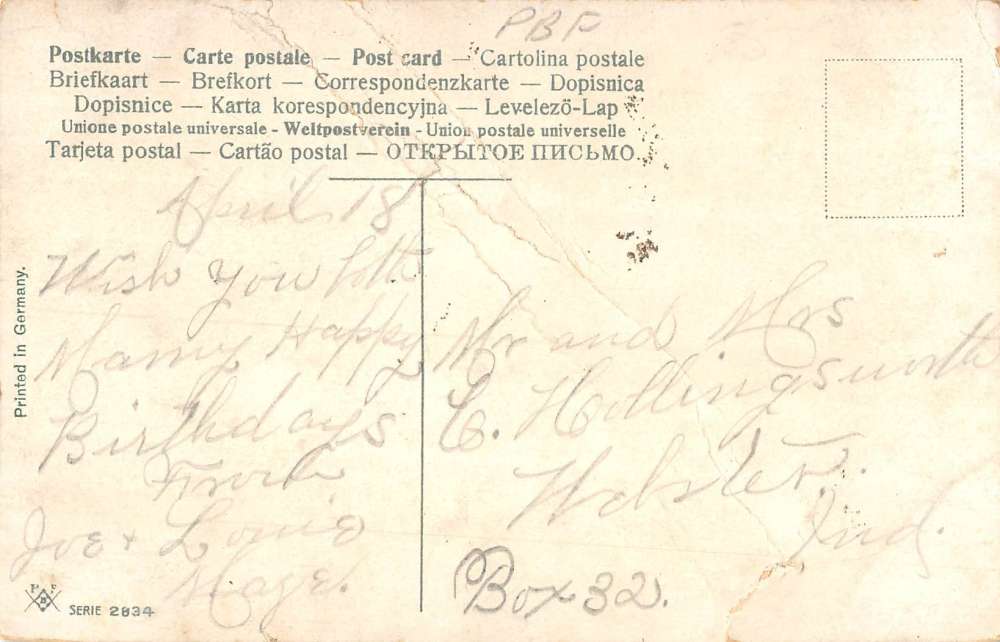 PBF
Postkarte — Carte postale — Post card — Cartolina postale
Briefkaart — Brefkort — Correspondenzkarte — Dopisnica
Dopisnice — Karta korespondencyjna — Levelező-Lap
Unione postale universale - Weltpostverein - Union postale universelle
Tarjeta postal — Cartão postal — ОТКРЫТОЕ ПИСЬМО.
April 18
Wish you both
Many Happy
Birthdays
From
Joe + Louie
Maze.
Mr and Mrs
E. Hollingsworth
Webster.
Ind.
Box 32.
Printed in Germany.
P B F
SERIE 2834